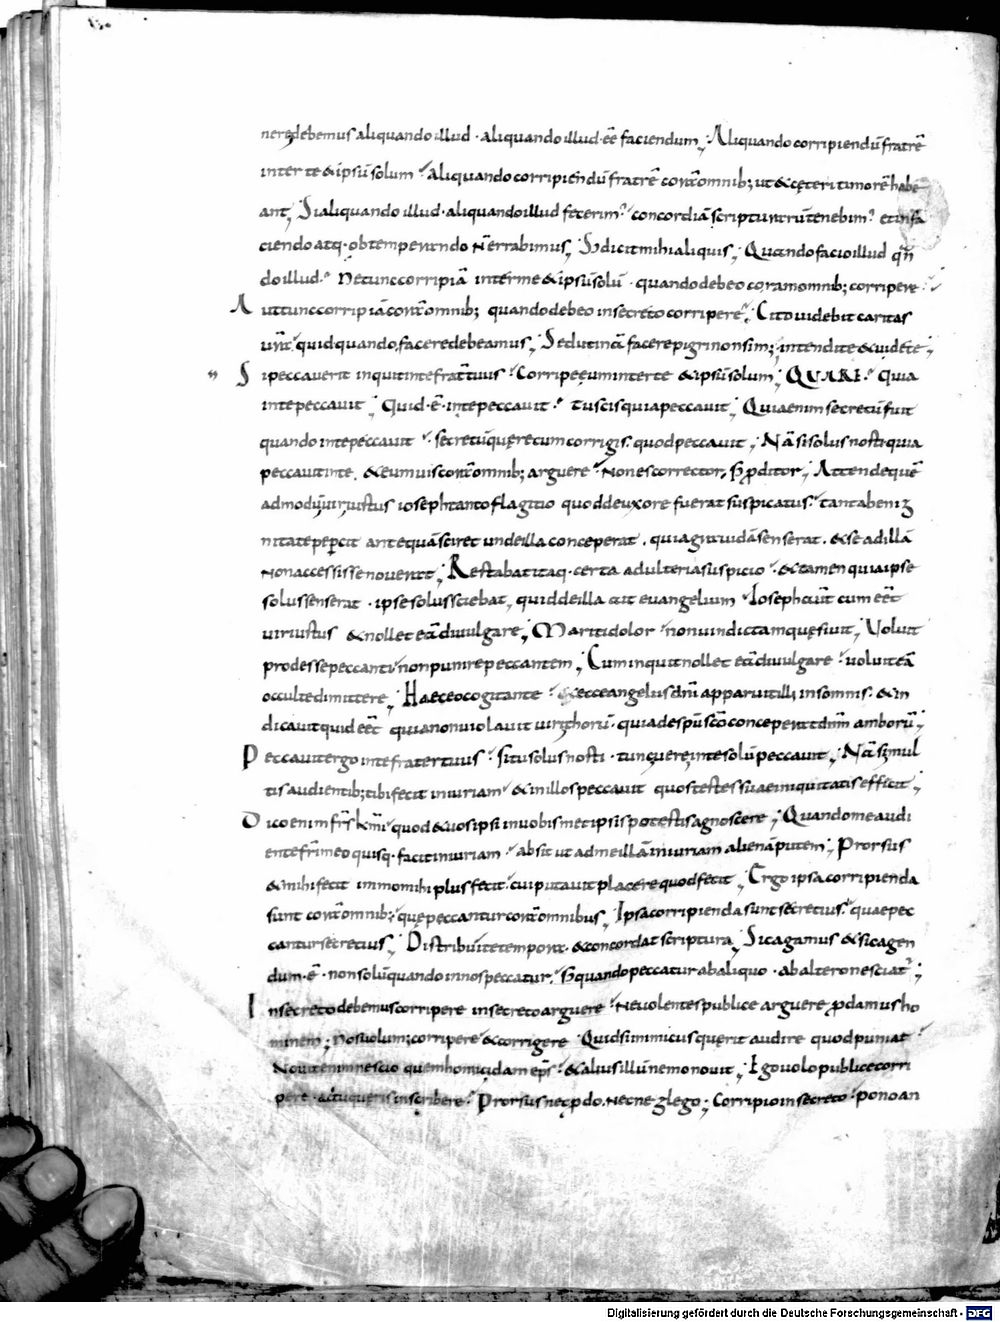 neredebemus aliquando illud · aliquando illud · eē faciendum; Aliquando corripiendū fratrē
inter te & ipsū solum · aliquando corripiendū fratrē corā omnib; ut & cęteri timorē habe
ant; Si aliquando illud · aliquando illud fecerim' · concordiā scripturarū tenebim' et in fa
ciendo atq · obtemperando Nerrabimus; Sȝ dicit mihi aliquis; Quando facio illud qn̄
do illud · Ne tunc corripiā inter me & ipsū solū · quando debeo coram omnib; corripere ·
Aut tunc corripiā corā omnib; quando debeo in secreto corripere; Cito videbit caritas
ur̄a · quid quando facere debeamus; Sed utinā facere pigri non sim'; intendite & uidete;
Si peccauerit inquit in te frater tuus · Corripe eum inter te & ipsū solum; QUARE · Quia
in te peccauit; Quid · ē · in te peccauit · Tu scis quia peccauit; Quia enim secretū fuit
quando in te peccauit · secretū quęre cum corrigis · quod peccauit; Nā si solus nosti quia
peccauit in te · & eum uis corā omnib; arguere · Non es corrector, sȝ p̄ditor; Attende quē
admodū uir iustus ioseph tanto flagitio quod de uxore fuerat suspicatus · tanta benig
nitate pepercit antequā sciret unde illa conceperat · quia grauidā senserat · & se ad illā
Non accessisse nouerat; Restabat itaq · certa adulterii suspicio · & tamen quia ipse
solus senserat · ipse solus sciebat, quid de illa ait euangelium · Ioseph aut̄ cum eēt
uir iustus & nollet eā diuulgare; Mariti dolor · non uindictam quęsiuit; Voluit
prodesse peccanti · non punire peccantem; Cum inquit nollet eā diuulgare · uoluit eā
occulte dimittere; Haec eo cogitante · & ecce angelus dn̄i apparuit illi in somnis · & in
dicauit quid eēt quia non uiolauit uiri thorū · quia de spū sc̄o conceperat dn̄m amborū;
Peccauit ergo in te frater tuus · si tu solus nosti · tunc uere in te solū peccauit; Nā si mul
tis audientib; tibi fecit iniuriam · & in illos peccauit quos testes suae iniquitatis efficit;
Dico enim fr̄s k̄mi quod & uos ipsi in uobismet ipsis potestis agnoscere; Quando me audi
ente fr̄i meo quisq · facit iniuriam · absit ut ad me illā iniuriam alienā putem; Prorsus
& mihi fecit immo mihi plus fecit · cui putauit placere quod fecit; Ergo ipsa corripienda
sunt corā omnib; quę peccantur corā omnibus; Ipsa corripienda sunt secretius · quae pec
cantur secretius; Distribuite tempora · & concordat scriptura; Sic agamus & sic agen
dum · ē · non solū quando in nos peccatur · sȝ quando peccatur ab aliquo · ab altero nesciat';
In secreto debemus corripere in secreto arguere · Ne uolentes publice arguere p̄damus ho
minem; Nos uolum; corripere & corrigere · Quid si inimicus quęrit audire quod puniat ·
Nouit enim nescio quem homicidam ep̄s · & alius illū nemo nouit; Ego uolo publice corri
pere · at tu quęris inscribere · Prorsus nec p̄do · Nec neglego; Corripio in secreto · pono an
Digitalisierung gefördert durch die Deutsche Forschungsgemeinschaft - DFG